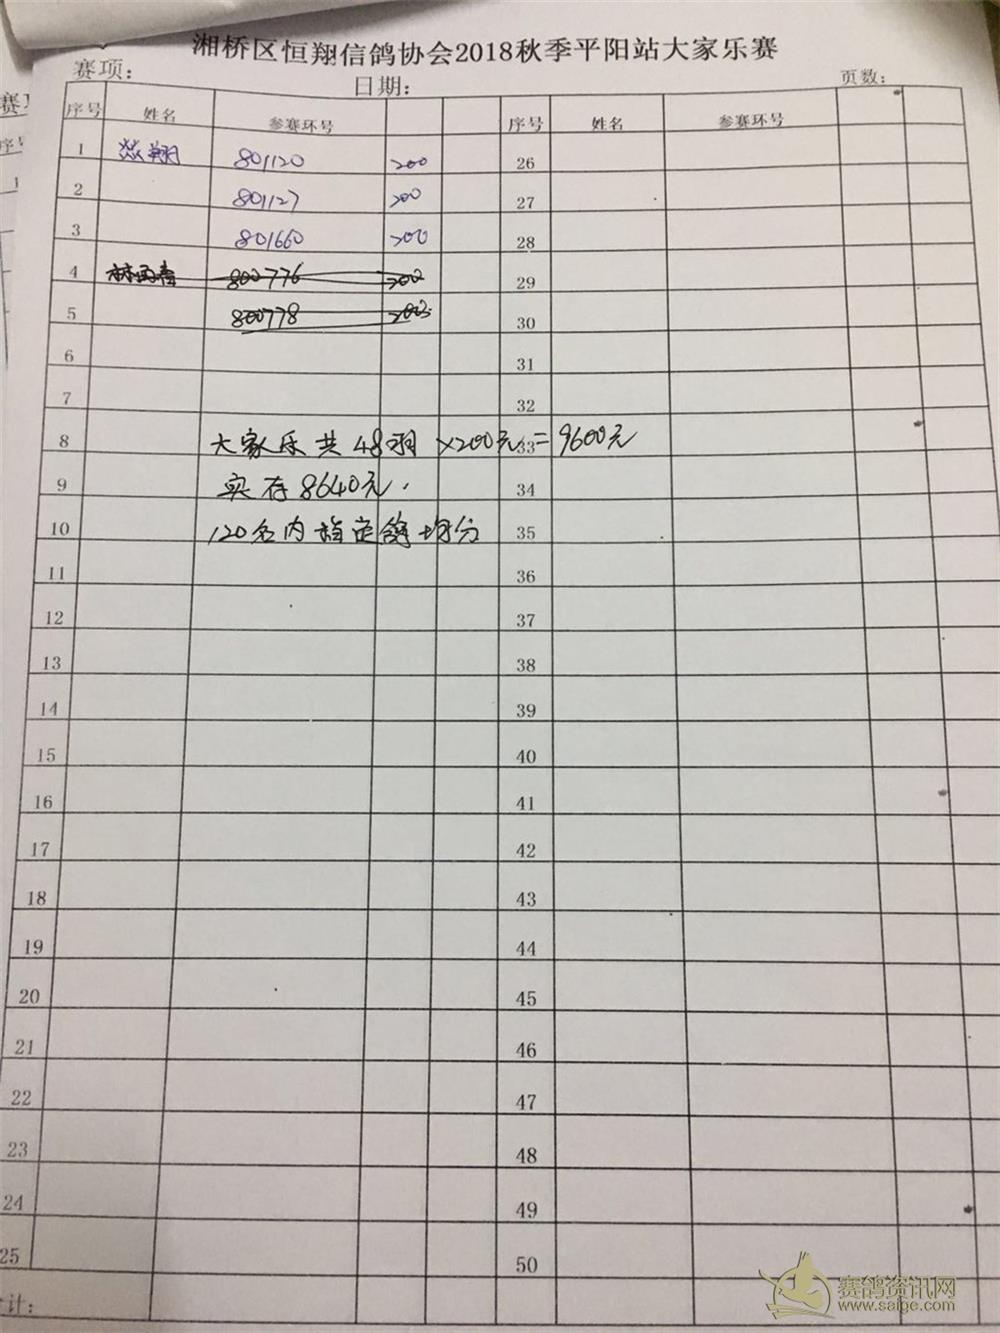 湘桥区恒翔信鸽协会2018秋季平阳站大家乐赛
赛项： 日期： 页数：
序号 姓名 参赛环号 序号 姓名 参赛环号
1 焱翔 801120 200 26
2 801127 200 27
3 801660 200 28
4 800776 200 29
5 800778 200 30
6 31
7 32
8 大家乐共48羽×200元=9600元 33
9 实存8640元. 34
10 120名内指定鸽均分 35
11 36
12 37
13 38
14 39
15 40
16 41
17 42
18 43
19 44
20 45
21 46
22 47
23 48
24 49
25 50
计：
赛鸽资讯网
www.saige.com